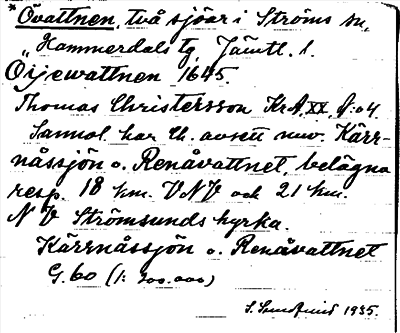 * Övattnen, två sjöar i Ströms sn,
„ Hammerdals tg, Jämtl. l.
Öijewattnen 1645.
Thomas Christersson Kr.A, XX, A:o 4.
Sannol. har Ch. avsett nuv. Kärr-
nåssjön o. Renåvattnet, belägna
resp. 18 km. VNV och 21 km.
NV Strömsunds kyrka.
Kärrnåssjön o. Renåvattnet
G. 60 (1: 200.000)
1935.